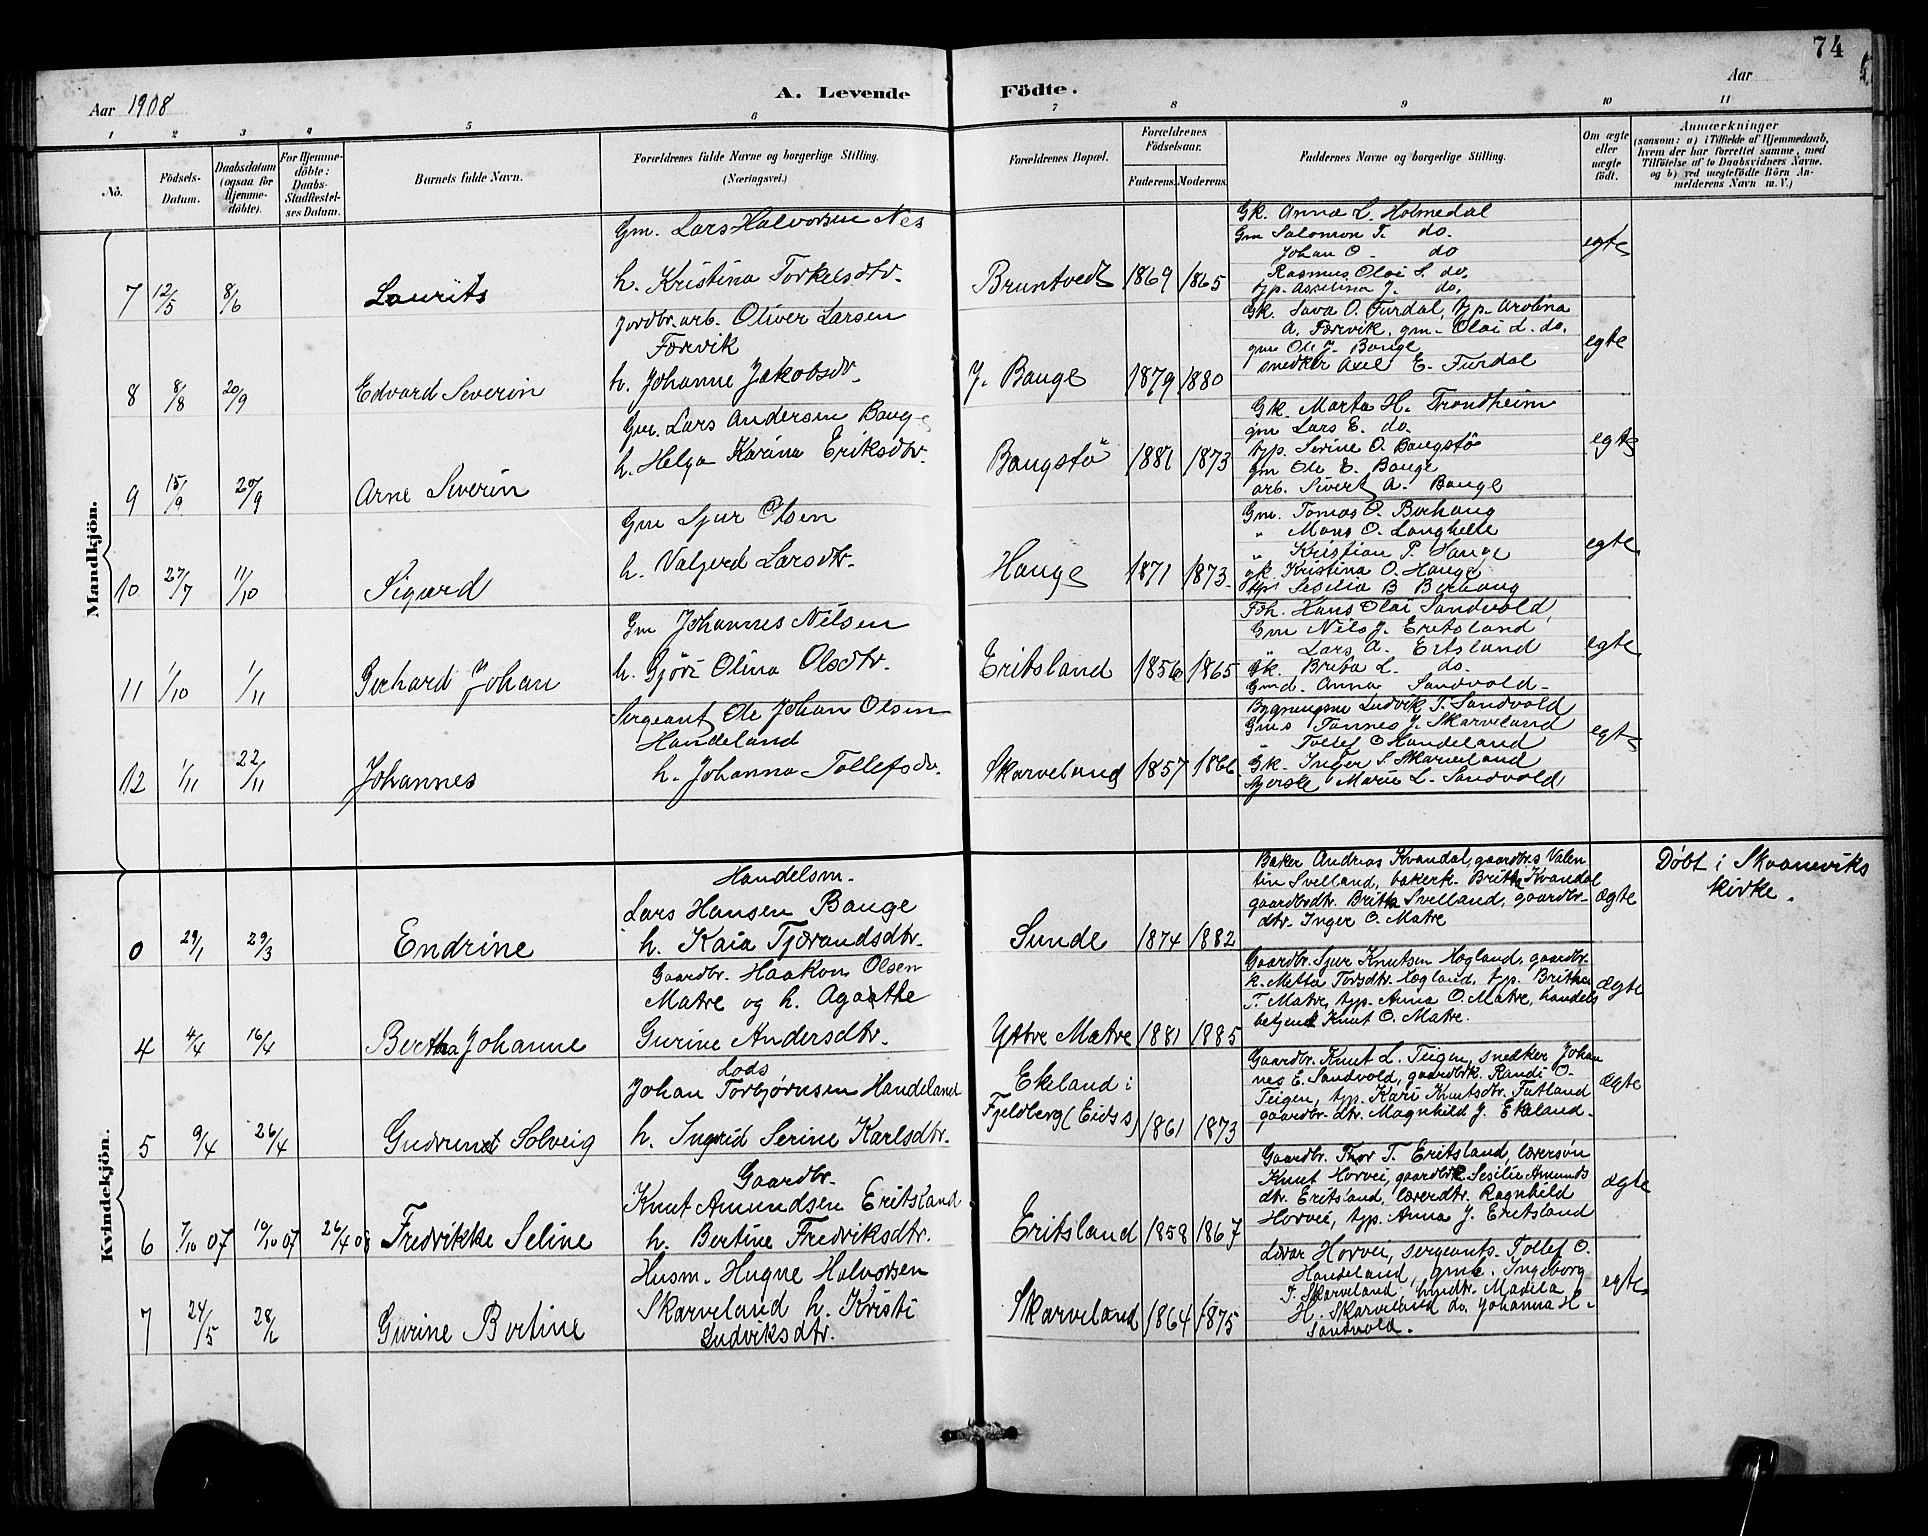 74
Aar 1908
A. Levende
Födte.
Aar
1 2 3 4 5 6 7 8 9 10 11
No.
Födsels-
Datum.
Daabsdatum
(ogsaa for
Hjemme-
döbte).
For Hjemme-
döbte:
Daabs-
Stadfæstel-
ses Datum.
Barnets fulde Navn.
Forældrenes fulde Navne og borgerlige Stilling.
(Næringsvei.)
Forældrenes Bopæl.
Forældrenes
Födselsaar.
Faderens. Moderens.
Faddernes Navne og borgerlige Stilling.
Om ægte
eller
uægte
födt.
Anmærkninger
(saasom: a) i Tilfælde af Hjemmedaab,
hvem der har forrettet samme, med
Tilföielse af to Daabsvidners Navne.
og b) ved uægtefödte Börn An-
melderens Navn m. V.)
Mandkjön.
7 12/5 8/6 Laurits
Gm. Lars Halvorsen Nes
h. Kristina Torkelsdtr.
Bruntvedt 1869 1865
Gk. Anna L. Holmedal
Gm Salomon T. do.
Johan O. do
Rasmus Olai S. do.
typ. Asselina J. do.
egte
8 8/8 20/9 Edvard Severin
jordbr.arb. Oliver Larsen
Færvik
h. Johanne Jakobsdr.
Y. Bauge 1879 1880
Gk. Sava O. Furdal, typ. Arolina
A. Færvik, gm. Olai L. do.
gm Ole J. Bauge
snedker Axel E. Furdal
egte
9 15/9 20/9 Arne Severin
Gm. Lars Andersen Bauge
h. Helga Karina Eriksdtr.
Baugstø 1881 1873
Gk. Marta H. Trondheim
gm Lars E. do.
typ. Serine O. Baugstø
gm Ole E. Bauge
arb. Sivert A. Bauge
egte
10 27/7 11/10 Sigurd
Gm Sjur Olsen
h. Valgerd Larsdtr.
Hauge 1871 1873.
Gm. Tomas O. Berhaug
" Mons O. Langhelle
" Kristian P. Hauge
gk. Kristina O. Hauge
typ. Sesilia B Berhaug
egte
11 1/10 1/11 Gerhard Johan
Gm Johannes Nilsen
h. Gjöri Olina Olsdtr.
Eritsland 1856 1865
Fdh. Hans Olai Sandvold
Gm Nils J. Eretsland
" Lars A. Eitsland
Gk. Brita L. do.
Gmd. Anna Sandvold
egte
12 1/11 22/11 Johannes
Sergeant Ole Johan Olsen
Handeland
h. Johanna Tollefsdr.
Skarveland 1857 1866
Ludvik T. Sandvold
Gms Tonnes J. Skarveland
" Tollef O Handeland
Gk. Inger S Skarveland
Marie L. Sandvold
egte
Kvindekjön.
0 29/1 29/3 Endrine
Handelsm.
Lars Hansen Bauge
h. Kaia Tjerandsdtr.
Sunde 1874 1882
Baker Andreas Kvandal, gaardbr.s Valen
tin Svelland, bakerk. Britha Kvandal
gaardbrdtr. Britha Svelland, gaardbr-
dtr. Inger O. Matre
ægte
Døbt i Skaaneviks
kirke.
4 4/4 16/4 Bertha Johanne
Gaardbr. Haakon Olsen
Matre og h. Agathe
Gurine Andersdtr.
Yttre Matre 1881 1885
Gaardbr. Sjur Knutsen Høgland, gaardbr-
k. Metta Torsdtr. Høgland, typ. Britha
T. Matre, typ. Anna O. Matre, handels
betjent Knut O. Matre.
ægte
5 9/4 26/4 Gudrun Solveig
Lods
Johan Torbjørnsen Handeland
h. Ingrid Serine Karlsdtr.
Ekeland i
Fjeldberg (Eids s) 1861 1873
Gaardbr. Knut L. Teigen, snedker Johan
nes E. Sandvold, gaardbrk. Randi O.
Teigen, typ. Kari Knutsdtr. Tutland
gaardbr. dtr. Magnhild J. Ekeland.
ægte
6 7/10 07 10/10 07 26/4 08 Fredrikke Seline
Gaardbr.
Knut Amundsen Eritsland
h. Bertine Fredriksdtr.
Eritsland 1858 1867
Gaardbr. Thor T. Eritsland, lærersøn
Knut Horvei, gaardbrk. Sesilie Amunds
dtr. Eritsland, lærerdtr. Ragnhild
Horvei, typ. Anna J. Eritsland
ægte
7 24/5 28/6 Gurine Bertine
Husm. Hugne Halvorsen
Skarveland h. Kristi
Ludviksdtr.
Skarveland 1864 1875
Lærer Horvei, sergeants. Tollef O.
Handeland, gmk. Ingeborg
T. Skarveland, hmdtr. Madela
H. Skarveland do. Johanna H.
Sandvold.
egte